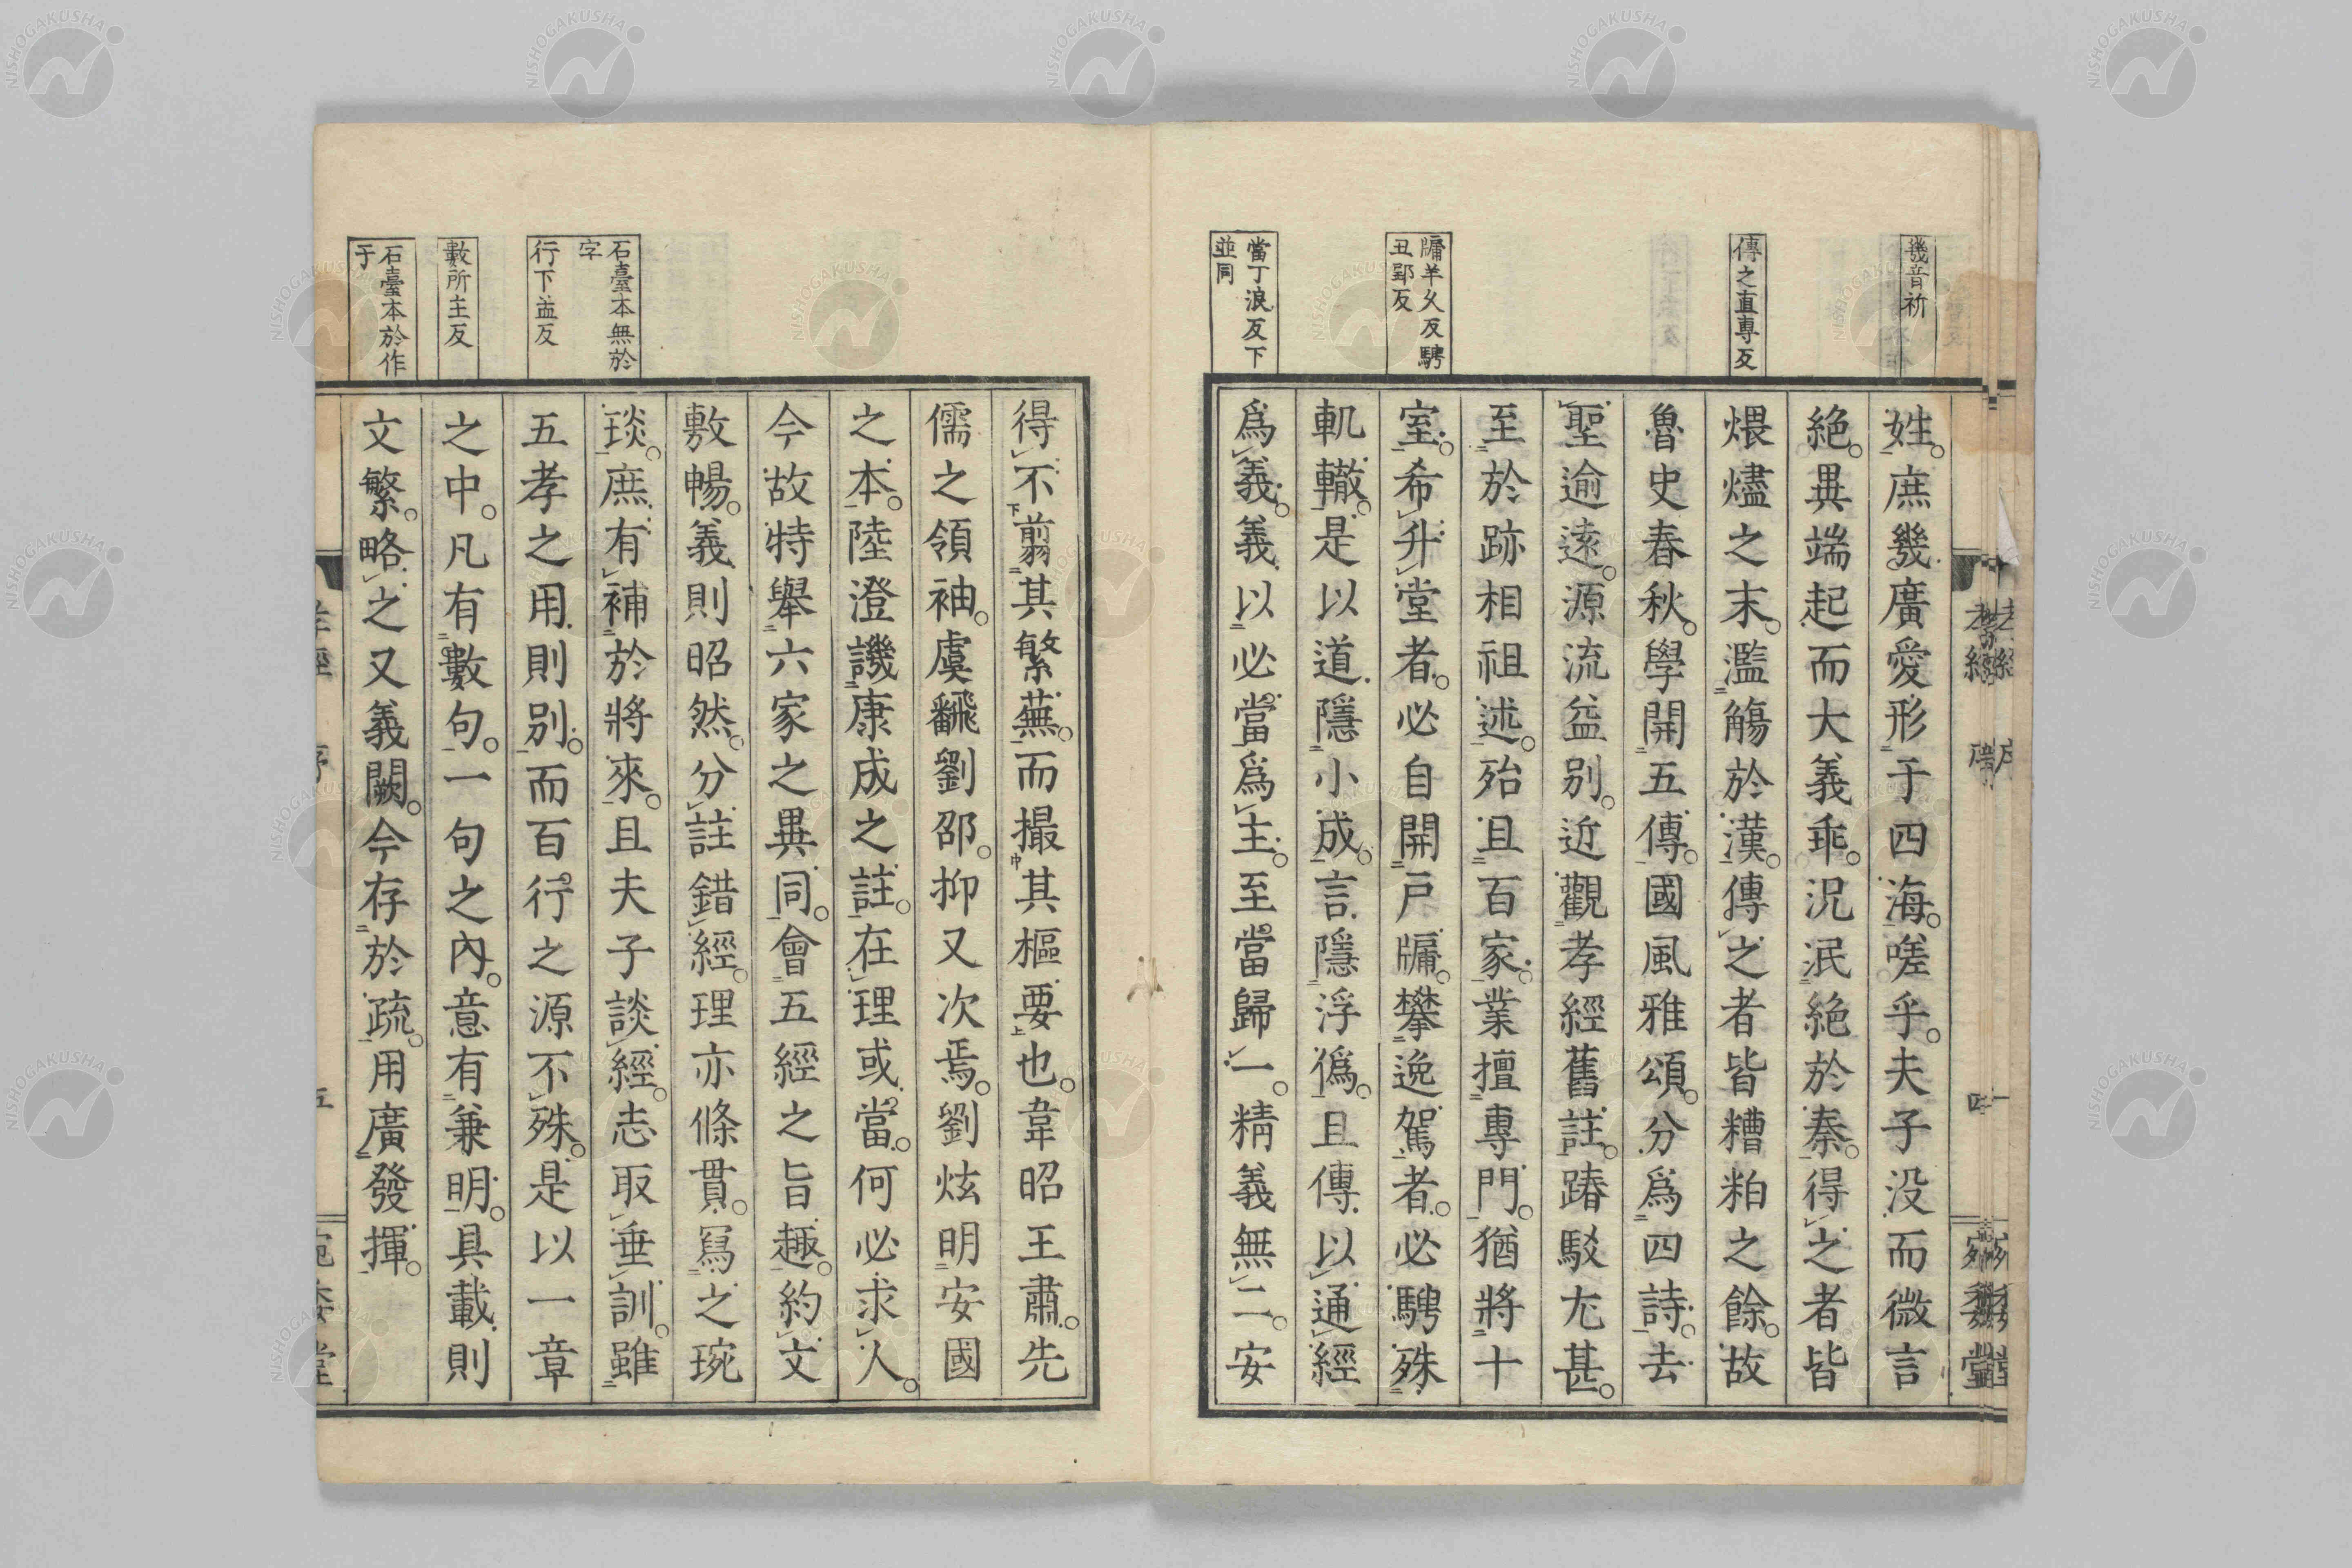 幾音祈
傳之直專反
牗羊久反騁
丑郢反
當丁浪反下
並同
姓。庶幾廣愛形于四海。嗟乎。夫子没而微言
絶。異端起而大義乖。況泯絶於秦。得之者皆
煨燼之末。濫觴於漢。傳之者皆糟粕之餘。故
魯史春秋。學開五傳。國風雅頌。分爲四詩。去
聖逾遠。源流益别。近觀孝經舊註。踳駁尢甚。
至於跡相祖述。殆且百家。業擅專門。猶將十
室。希升堂者。必自開戸牗。攀逸駕者。必騁殊
軌轍。是以道隱小成。言隱浮僞。且傳以通經
爲義。義以必當爲主。至當歸一。精義無二。安
孝經 序 四
石臺本無於
字
行下孟反
數所主反
石臺本於作
于
得不翦其繁蕪。而撮其樞要也。韋昭王肅。先
儒之領袖。虞飜劉邵。抑又次焉。劉炫明安國
之本。陸澄譏康成之註。在理或當。何必求人。
今故特舉六家之異同。會五經之旨趣。約文
敷暢。義則昭然。分註錯經。理亦條貫。寫之琬
琰。庶有補於將來。且夫子談經。志取垂訓。雖
五孝之用則别。而百行之源不殊。是以一章
之中。凡有數句。一句之内。意有兼明。具載則
文繁。略之又義闕。今存於疏。用廣發揮。
NISHOGAKUSHA